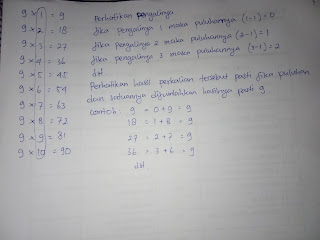 9 x 1 = 9
9 x 2 = 18
9 x 3 = 27
9 x 4 = 36
9 x 5 = 45
9 x 6 = 54
9 x 7 = 63
9 x 8 = 72
9 x 9 = 81
9 x 10 = 90
Perhatikan pengalinya
Jika pengalinya 1 maka puluhannya (1-1) = 0
Jika pengalinya 2 maka puluhannya (2-1) = 1
Jika pengalinya 3 maka puluhannya (3-1) = 2
dst
Perhatikan hasil perkalian tersebut pasti jika puluhan
dan satuannya dijumlahkan hasilnya pasti 9.
contoh: 9 = 0+9 = 9
18 = 1+8 = 9
27 = 2+7 = 9
36 = 3+6 = 9
dst